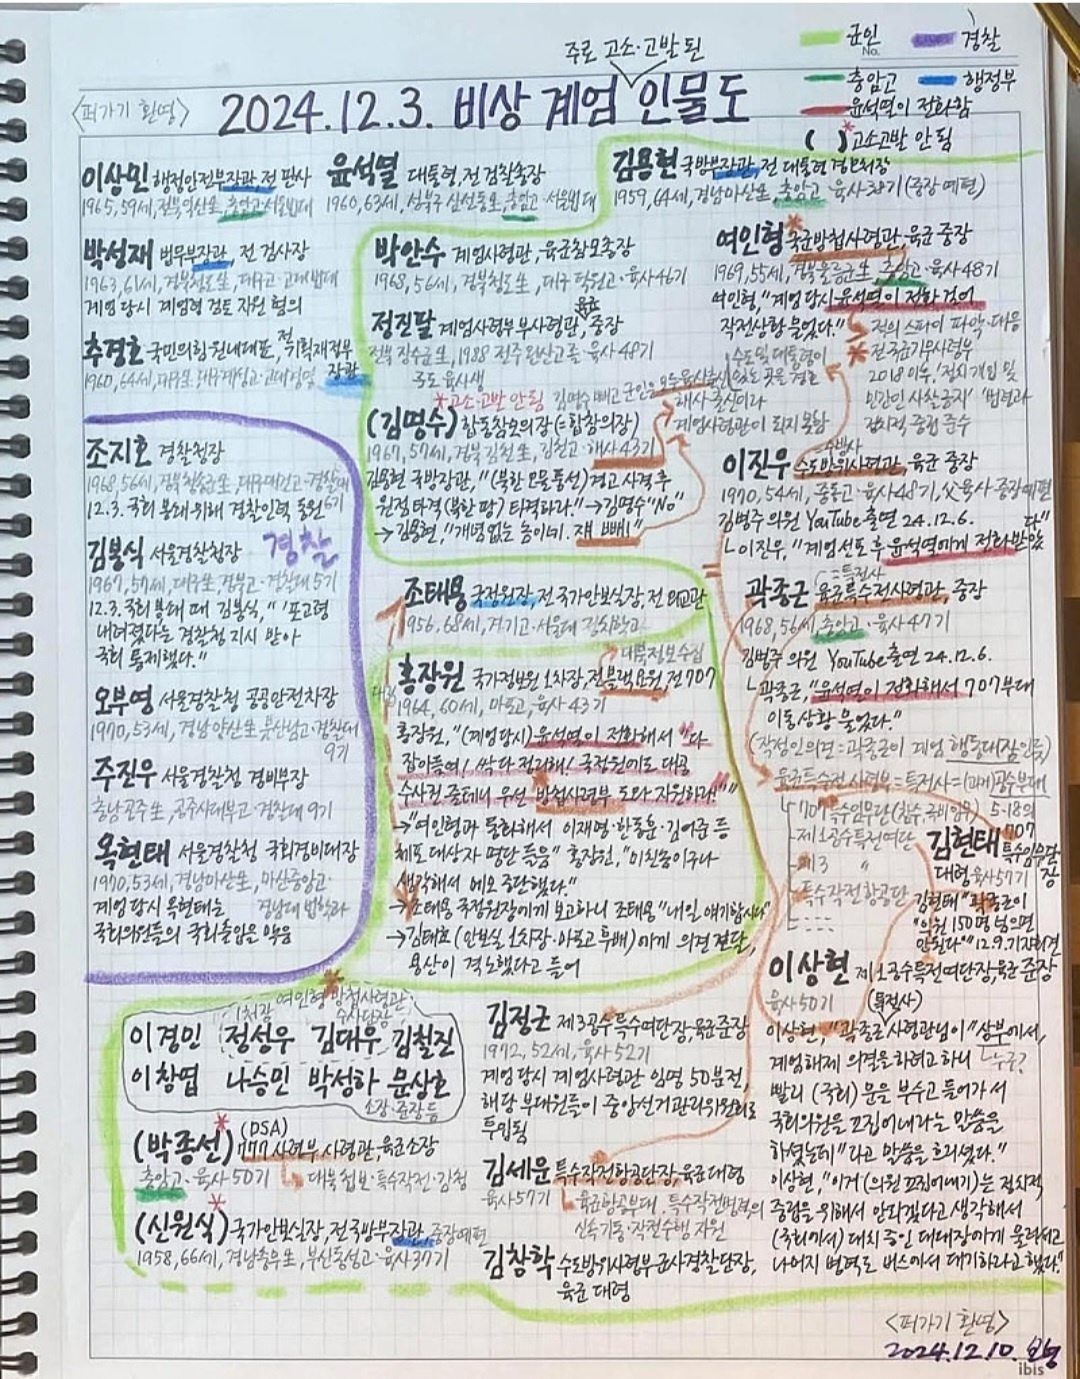 주로 고소·고발 된
군인
경찰
<퍼가기 환영>
2024.12.3. 비상 계엄 인물도
충암고 행정부
윤석열이 전화함
( )* 고소고발 안 됨
이상민 행정안전부장관, 전 판사
1965, 59세, 전북익산生, 충암고·서울법대
윤석열 대통령, 전 검찰총장
1960, 63세, 성북구 삼선동生, 충암고·서울법대
김용현 국방부장관, 전 대통령 경호처장
1959, 64세, 경남마산生, 충암고·육사38기(중장 예편)
박성재 법무부장관, 전 검사장
1963, 61세, 경북청도生, 대구고·고대법대
계엄 당시 계엄령 검토 지원 혐의
추경호 국민의힘 원내대표, 전 기획재정부
장관
1960, 64세, 대구生, 대구계성고·고대경영
박안수 계엄사령관, 육군참모총장
1968, 56세, 경북청도生, 대구 덕원고·육사46기
정진팔 계엄사령부 부사령관, 육군 중장
전북 장수군生, 1988 전주완산고 졸·육사48기
*고소·고발 안 됨
(김명수) 합동참모의장(=합참의장)
1967, 57세, 경북 김천生, 김천고·해사43기
김용현 국방장관, "(북한 오물풍선) 경고 사격 후
원점 타격(북한 땅) 타격하라." → 김명수 "No"
→ 김용현, "개념없는 놈이네. 쟤 빼!"
해사 출신이라
계엄사령관이 되지 못함
여인형* 국군방첩사령관, 육군 중장
1969, 55세, 경북울릉군生, 충암고·육사48기
여인형, "계엄 당시 윤석열이 전화 걸어
작전상황 물었다."
적의 스파이 파악·대응
전 국군기무사령부
2018 이후, '정치 개입 및
민간인 사찰금지' '법령과
정치적 중립 준수
이진우 수도방위사령관, 육군 중장
1970, 54세, 중동고·육사48기, 父 육사·중장예편
김병주 의원 YouTube 출연 24.12.6.
└ 이진우, "계엄 선포 후 윤석열에게 전화받았
다"
조지호 경찰청장
1968, 56세, 경북청송生, 대구대건고·경찰대
6기
12.3. 국회 봉쇄 위해 경찰인력 동원
경찰
김봉식 서울경찰청장
1967, 57세, 대구生, 경북고·경찰대 5기
12.3. 국회 봉쇄 때 김봉식, "'포고령
내려졌다'는 경찰청 지시 받아
국회 통제했다."
오부명 서울경찰청 공공안전차장
1970, 53세, 경남 양산生, 부산남고·경찰대
9기
주진우 서울경찰청 경비부장
충남공주生, 공주사대부고·경찰대 9기
옥현태 서울경찰청 국회경비대장
1970, 53세, 경남마산生, 마산중앙고·
경남대 법학과
계엄 당시 옥현태는
국회의원들의 국회출입을 막음
조태용 국정원장, 전 국가안보실장, 전 외교관
1956, 68세, 경기고·서울대 정치학과
대북정보수집
홍장원 국가정보원 1차장, 전 블랙요원, 전 707
1964, 60세, 마포고, 육사43기
홍장원, "(계엄당시) 윤석열이 전화해서 "다
잡아들여! 싹 다 정리해! 국정원에도 대공
수사권 줄테니 우선 방첩사령부 도와 지원하라!""
→ "여인형과 통화해서 이재명·한동훈·김어준 등
체포 대상자 명단 들음" 홍장원, "미친놈이구나
생각해서 메모 중단했다."
→ 조태용 국정원장에게 보고하니 조태용 "내일 얘기합시다"
→ 김태효(안보실 1차장·마포고 후배)에게 의견 전달,
용산이 격노했다고 들어
=특전사
곽종근 육군특수전사령관, 중장
1968, 56세, 충암고·육사47기
김병주 의원 YouTube 출연 24.12.6.
└ 곽종근, "윤석열이 전화해서 707부대
이동상황 물었다."
육군특수전사령부=특전사=(과거)공수부대
707특수임무단
제1공수특전여단
제3 〃
특수작전항공단
김현태 707 특수임무단장
대령 육사57기
김현태 "곽종근이
"의원 150명 넘으면
안된다"" 12.9. 기자회견
이상현 제1공수특전여단장, 육군 준장
육사50기 (특전사)
이상현, "곽종근 사령관님이 "상부에서,
└ 누구?
계엄해제 의결을 하려고 하니
빨리 (국회) 문을 부수고 들어가서
국회의원을 끄집어내라는 말씀을
하셨는데" 라고 말씀을 흐리셨다."
이상현, "이거 (의원 끄집어내기)는 정치적
중립을 위해서 안되겠다고 생각해서
(국회에서) 대치 중인 대대장에게 물러서고
나머지 병력도 버스에서 대기하라고 했다."
여인형 방첩사령관
1처장 수사단장
이경민 정성우 김대우 김철진
이창엽 나승민 박성하 문상호
소장·준장 등
(박종선)* (DSA) 777사령부 사령관, 육군소장
충암고·육사50기
대북첩보·특수작전·감청
(신원식)* 국가안보실장, 전 국방부장관, 중장예편
1958, 66세, 경남충무生, 부산동성고·육사37기
김정근 제3공수특수여단장, 육군준장
1972, 52세, 육사52기
계엄 당시 계엄사령관 임명 50분전,
해당 부대원들이 중앙선거관리위원회로
투입됨
김세운 특수작전항공단장, 육군대령
육사57기
└ 육군항공부대. 특수작전병력의
신속기동·작전수행 지원
김창학 수도방위사령부 군사경찰단장,
육군 대령
<퍼가기 환영>
2024.12.10.
ibis